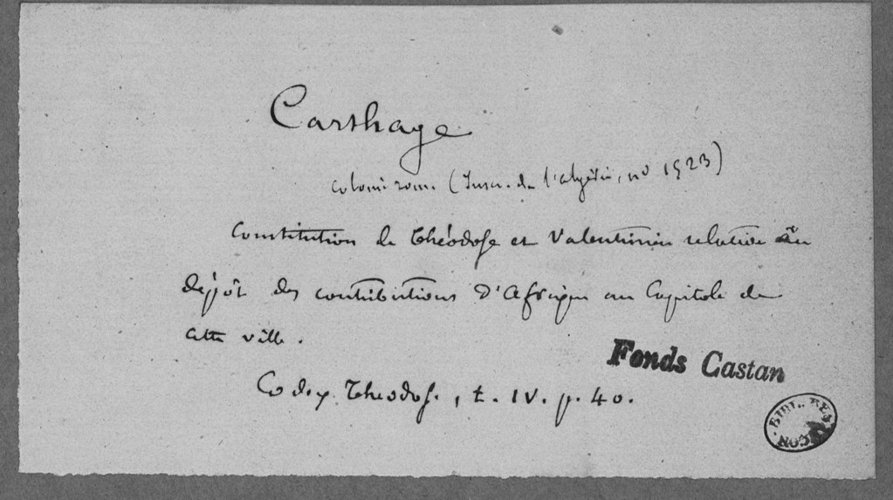 Carthage
colonie rom. (Inscr. de l'Algérie, no 1923)
Constitution de Théodose et Valentinien relative au
dépôt des contributions d'Afrique au Capitole de
cette ville.
Codex Theodos., t. IV. p. 40.
Fonds Castan
BIBL. BESANÇON